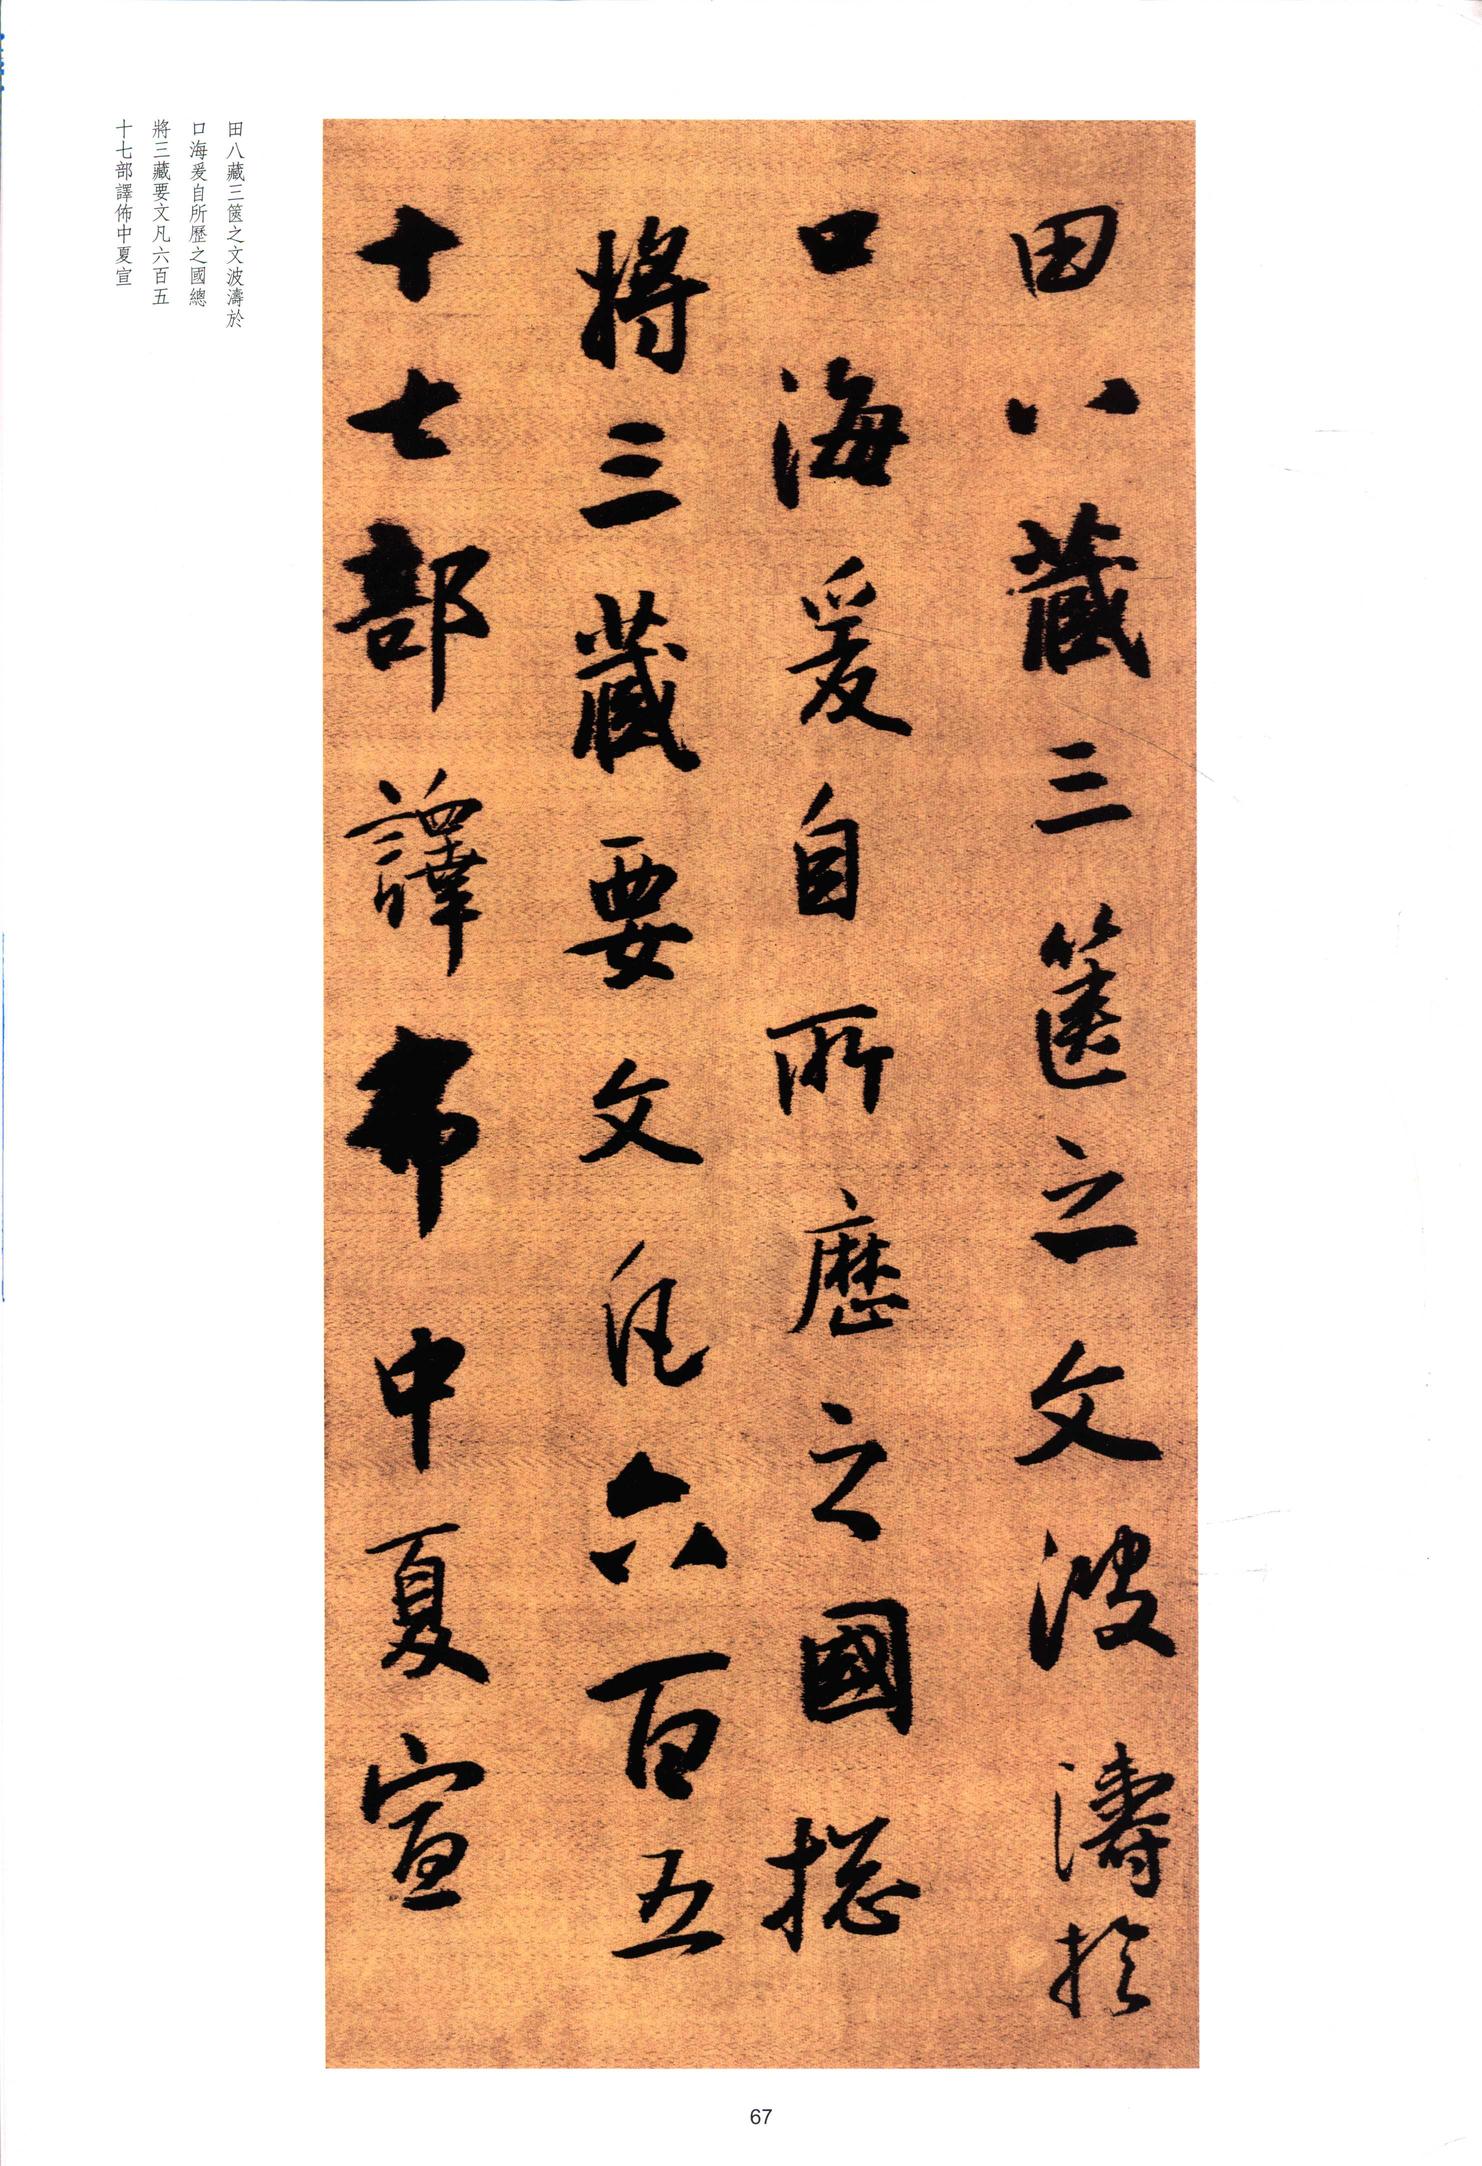 田八藏三篋之文波濤於
口海爰自所歷之國總
將三藏要文凡六百五
十七部譯布中夏宣
田八藏三篋之文波濤於
口海爰自所歷之國總
將三藏要文凡六百五
十七部譯佈中夏宣
67